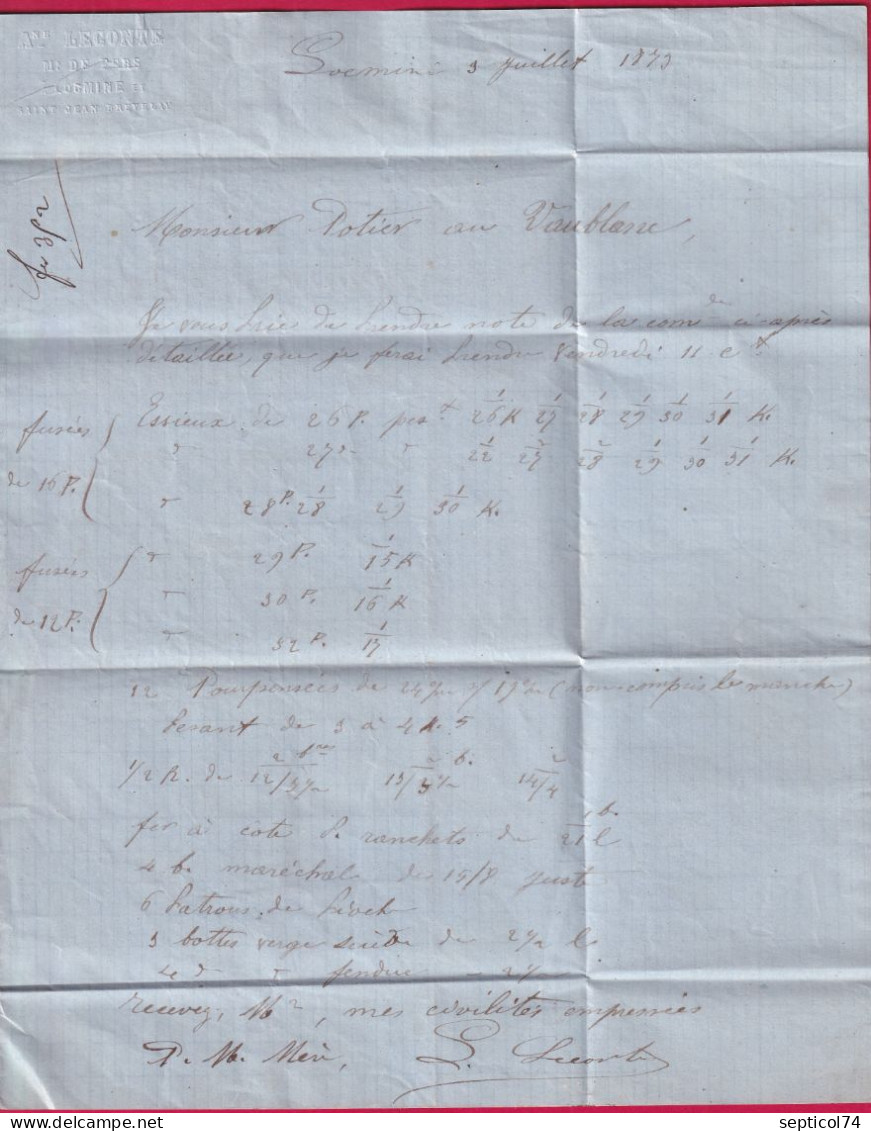 LECONTE
Md DE FERS
LOCMINÉ ET
SAINT JEAN BREVELAY
Locminé 3 Juillet 1873
Monsieur Potier au Vaublanc,
Je vous prie de prendre note de la comde ci après
détaillée, que je ferai prendre Vendredi 11 ct
fusées de 16 P.
Essieux de 26 P. pest 1/26 K 1/27 1/28 1/29 1/30 1/31 K.
27 1/22 2/27 2/28 1/29 1/30 1/31 K.
28 P. 1/28 1/29 1/30 K.
fusées de 12 P.
29 P. 1/15 K
30 P. 1/16 K
32 P. 1/17
12 de 24 19 (non compris le manche)
pesant de 3 à 4 K. 5
1/2 R. de 12/3 13/3 14/4
fer à côté P. ranchets de 1/21 l
4 b. maréchal de 15/8 juste
6 patrons de
3 bottes verge de
fendue
recevez, Mr, mes civilités empressées
P. M. Mère, L. Leconte
septicol74